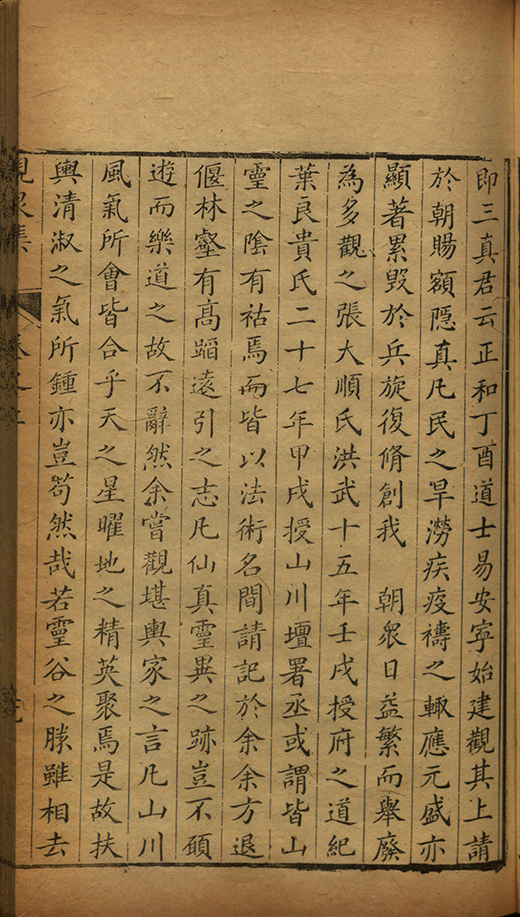 即三真君云正和丁酉道士易安寧始建觀其上請
於朝賜額隱真凡民之旱澇疾疫禱之輙應元盛亦
顯著累毀於兵旋復脩創我　朝衆日益繁而舉廢
為多觀之張大順氏洪武十五年壬戌授府之道紀
葉良貴氏二十七年甲戌授山川壇署丞或謂皆山
靈之隂有祜焉而皆以法術名間請記於余余方退
偃林壑有高蹈遠引之志凡仙真靈異之跡豈不碩
遊而樂道之故不辭然余嘗觀堪輿家之言凡山川
風氣所會皆合乎天之星曜地之精英聚焉是故扶
輿清淑之氣所鍾亦豈茍然哉若靈谷之勝雖相去
峴泉集
卷之三